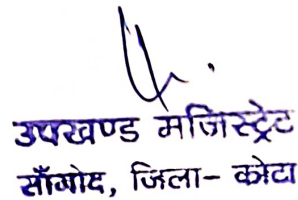 उपखण्ड मजिस्ट्रेट
साँगोद, जिला- कोटा